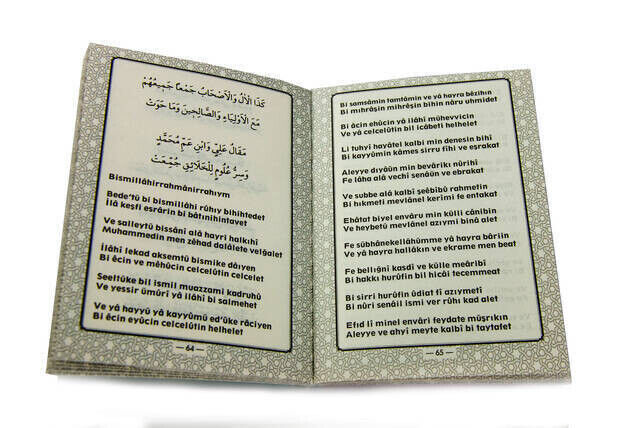 كَذَا الْاٰلُ وَالْاَصْحَابُ جَمْعًا جَمِيعُهُمْ
مَعَ الْاَوْلِيَاءِ وَالصَّالِحِينَ وَمَا حَوَتْ
مَقَالُ عَلِيٍّ وَابْنِ عَمِّ مُحَمَّدٍ
وَسِرُّ عُلُومٍ لِلْخَلَائِقِ جُمِّعَتْ
Bismillâhirrahmânirrahıym
Bede'tü bi bismillâhi rûhıy bihihtedet
İlâ keşfi esrârin bi bâtınihintavet
Ve salleytü bissâni alâ hayri halkıhî
Muhammedin men zêhad dalâlete velğalet
İlâhi lekad aksemtü bismike dâıyen
Bi êcin ve mêhûcin celcelûtin celcelet
Seeltüke bil ismil muazzami kadruhû
Ve yessir ümûrî yâ ilâhî bi salmehet
Ve yâ hayyü yâ kayyûmü ed'ûke râciyen
Bi êcin eyûcin celcelûtin helhelet
— 64 —
Bi samsâmin tamtâmin ve yâ hayra bêzihın
Bi mıhrâşin mihrâşin bihin nâru uhmidet
Bi âcin ehûcin yâ ilâhî mühevvicin
Ve yâ celcelûtin bil icâbeti helhelet
Li tuhyî hayâtel kalbi min denesin bihî
Bi kayyûmin kâmes sirru fîhi ve eşrakat
Aleyye dıyâün min bevârikı nûrihî
Fe lâha alâ vechî senâün ve ebrakat
Ve subbe alâ kalbî şeêbîbü rahmetin
Bi hıkmeti mevlânel kerimi fe entakat
Ehâtat biyel envâru min külli cânibin
Ve heybetü mevlânel azıymi binâ alet
Fe sübhânekellâhümme yâ hayra bâriin
Ve yâ hayra hallâkın ve ekrame men beat
Fe bellıgnî kasdî ve külle meâribî
Bi hakkı hurûfin bil hicâi tecemmeat
Bi sirri hurûfin ûdiat fî azıymetî
Bi nûri senâil ismi ver rûhı kad alet
Efıd lî minel envâri feydate müşrıkın
Aleyye ve ahyi meyte kalbî bi taytafet
— 65 —